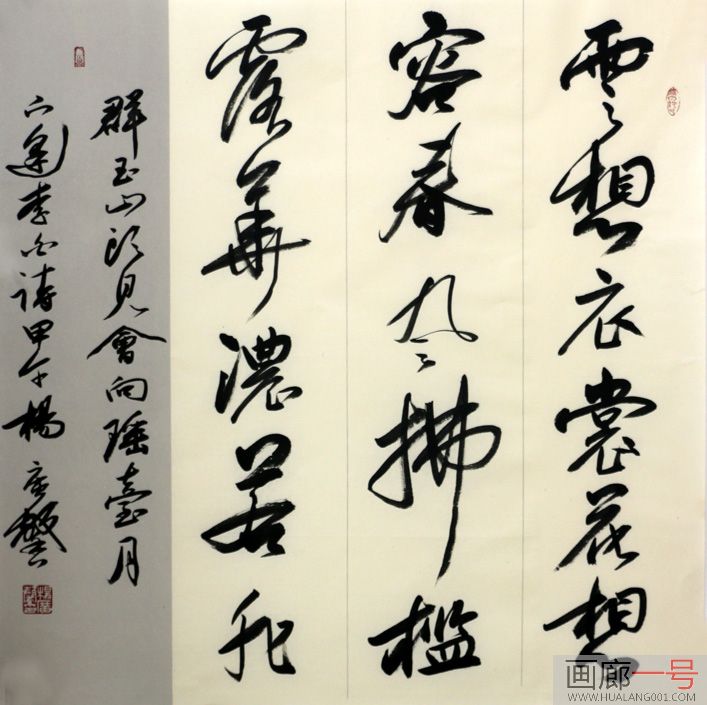 雲想衣裳花想
容春風拂檻
露華濃若非
群玉山頭見會向瑤臺月
下逢李白詩甲午楊廣馨
画廊一号
WWW.HUALANG001.COM